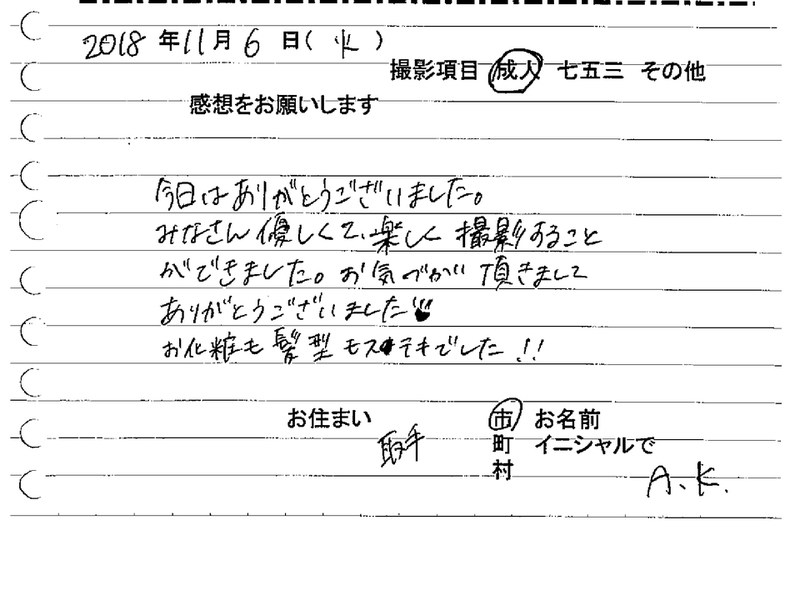 2018年11月6日(火)
撮影項目 成人 七五三 その他
感想をお願いします
今日はありがとうございました。
みなさん優しくて、楽しく撮影すること
ができました。お気づかい頂きまして
ありがとうございました
お化粧も髪型もステキでした!!
お住まい 取手 市町村
お名前 イニシャルで
A.K.